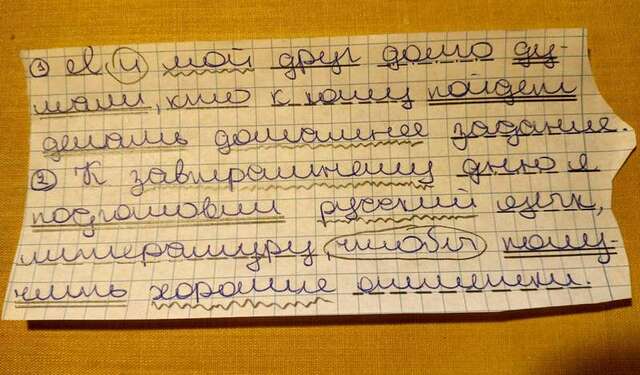 ① Я и мой друг долго ду-
мали, кто к кому пойдет
делать домашнее задание.
② К завтрашнему дню я
подготовил русский язык,
литературу, чтобы полу-
чить хорошие отметки.